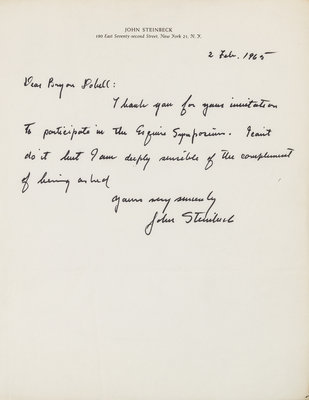 JOHN STEINBECK
190 East Seventy-second Street, New York 21, N. Y.
2 Feb. 1965
Dear Byron Dobell:
Thank you for your invitation
to participate in the Esquire Symposium. I can't
do it but I am deeply sensible of the complement
of being asked
yours very sincerely
John Steinbeck